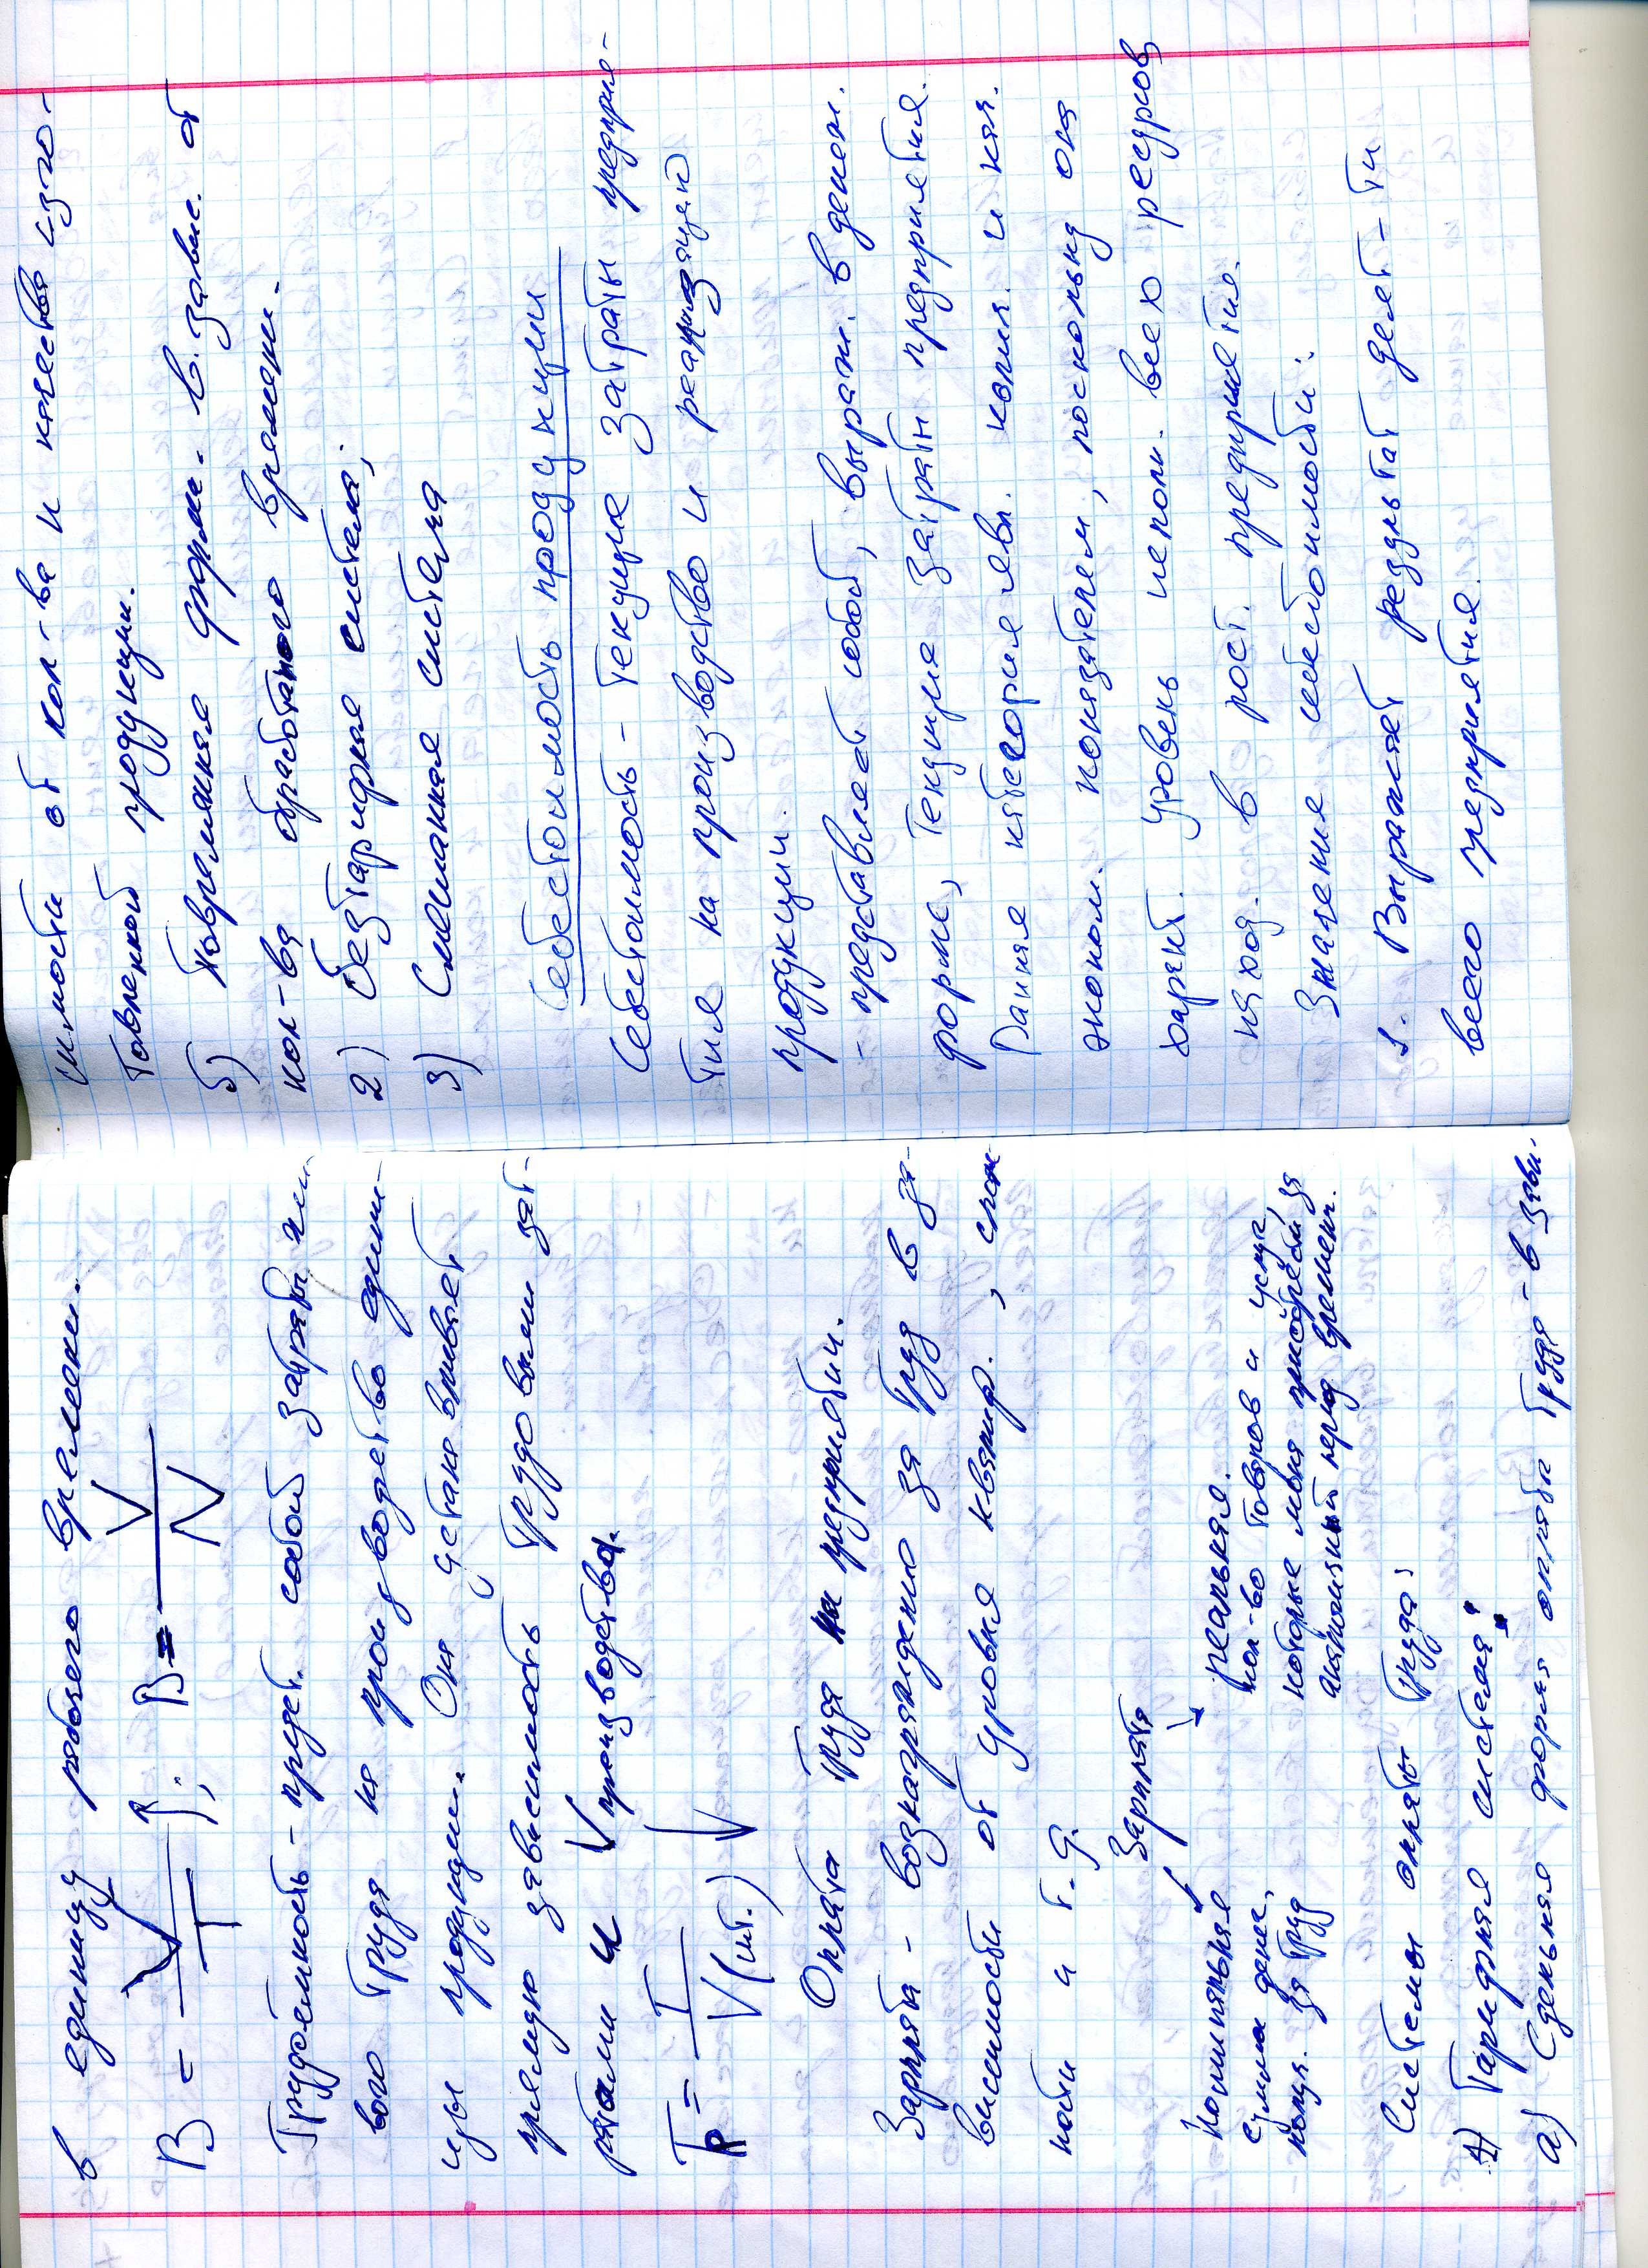 в единицу рабочего времени.
В = V/T; В = V/N
Трудоёмкость - предст. собой затраты жи-
вого труда на производство едини-
цы продукции. Она устанавливает
прямую зависимость трудовыми зат-
ратами и V производства.
Тр = T/V(шт.) ↓
Оплата труда на предприятии.
Зарплата - вознаграждение за труд в за-
висимости от уровня квалиф., слож
ности и т.д.
Зарплата
номинальная
сумма денег,
получ. за труд
реальная.
кол-во товаров и услуг,
которые можно приобрести за
аналогичный период времени.
Системы оплаты труда:
1) Тарифная система:
а) Сдельная форма оплаты труда - в зави-
симости от кол-ва и качества изго-
товленной продукции.
б) Повременная форма. в. завис. от
кол-ва отработаного времени.
2) Безтарифная система;
3) Смешанная система
Себестоимость продукции
Себестоимость - текущие затраты предприя-
тия на производство и реализацию
продукции.
- представляет собой, выраж. в денеж.
форме, текущие затраты предприятия.
Данная категория явл. колич. и кач.
эконом. показателем, поскольку она
характ. уровень исполь. всех ресурсов
наход. в расп. предприятия.
Значения себестоимости:
1. Выражает результат деят-ти
всего предприятия.